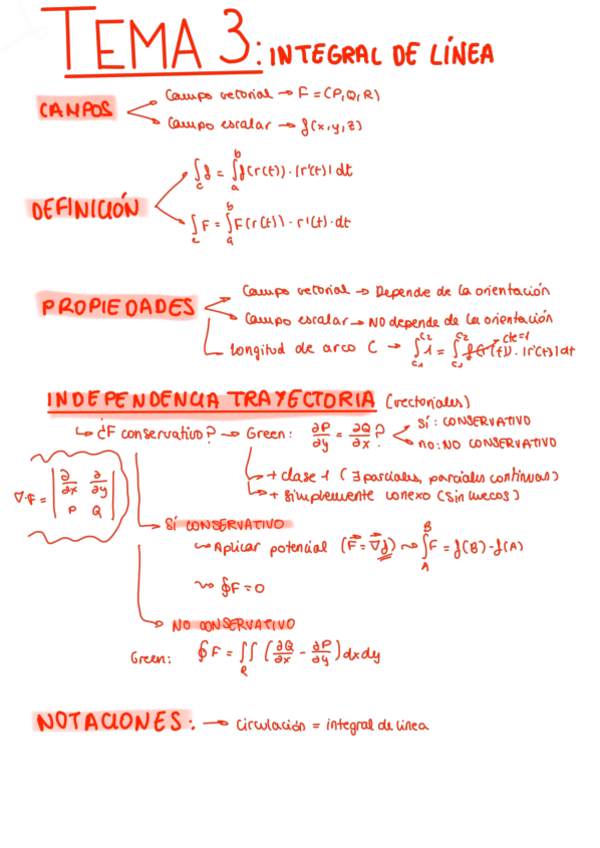 TEMA 3: INTEGRAL DE LÍNEA
CAMPOS
Campo vectorial → F = (P, Q, R)
Campo escalar → f(x, y, z)
DEFINICIÓN
∫_c f = ∫_a^b f(r(t)) · |r'(t)| dt
∫_c F = ∫_a^b F(r(t)) · r'(t) · dt
PROPIEDADES
Campo vectorial → Depende de la orientación
Campo escalar → NO depende de la orientación
Longitud de arco C → ∫_{c1}^{c2} 1 = ∫_{c1}^{c2} f(r(t)) · |r'(t)| dt
cte=1
INDEPENDENCIA TRAYECTORIA (vectoriales)
↳ ¿F conservativo? → Green: ∂P/∂y = ∂Q/∂x ?
SÍ: CONSERVATIVO
no: NO CONSERVATIVO
+ clase 1 (∃ parciales, parciales continuas)
+ simplemente conexo (sin huecos)
∇·F = | ∂/∂x ∂/∂y |
P Q
SÍ CONSERVATIVO
↝ Aplicar potencial (F⃗ = ∇⃗f) ↝ ∫_A^B F = f(B) - f(A)
↝ ∮F = 0
NO CONSERVATIVO
Green: ∮F = ∬_R (∂Q/∂x - ∂P/∂y) dxdy
NOTACIONES: → Circulación = integral de línea